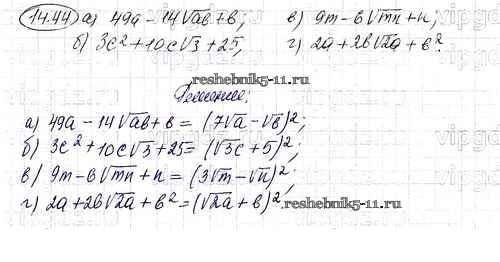 14.44 а) 49a - 14√ab + b; в) 9m - 6√mn + n;
б) 3c² + 10c√3 + 25; г) 2a + 2b√2a + b².
reshebnik5-11.ru
Решение:
а) 49a - 14√ab + b = (7√a - √b)²;
б) 3c² + 10c√3 + 25 = (√3c + 5)²;
в) 9m - 6√mn + n = (3√m - √n)²;
г) 2a + 2b√2a + b² = (√2a + b)².
reshebnik5-11.ru